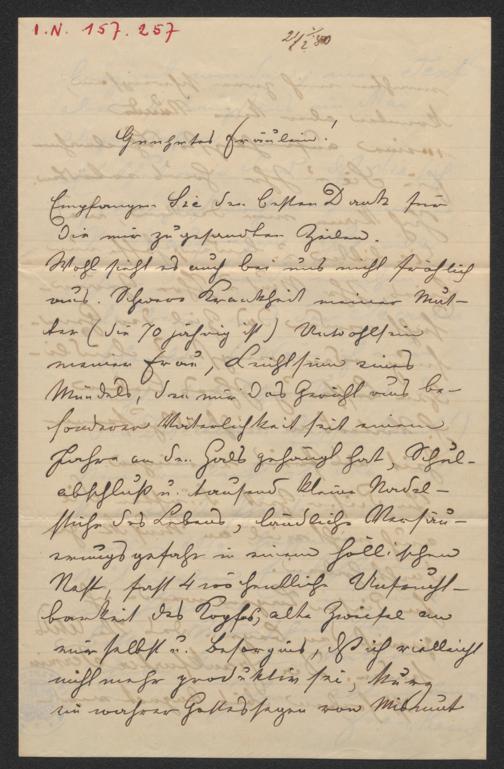 I.N. 157.257
21/7 80
Geehrtes Fräulein!
Empfangen Sie den besten Dank für
die mir zugesandten Zeilen.
Wohl sieht es auch bei uns nicht fröhlich
aus. Schwere Krankheit meiner Mut-
ter (die 70jährig ist) Unwohlsein
meiner Frau, Leichtsinn eines
Mündels, den mir das Gericht aus be-
sonderer Väterlichkeit seit einem
Jahre an den Hals gehängt hat, Schul-
abschluß u. tausend kleine Nadel-
stiche des Lebens, ländliche Versau-
erungsgefahr in einem höllischen
Nest, fast 4 wöchentliche Unfrucht-
barkeit des Kopfes, alte Zweifel an
mir selbst u. Besorgnis, daß ich vielleicht
nicht mehr produktiv sei, kurz
ein wahrer Gottessegen von Mismut